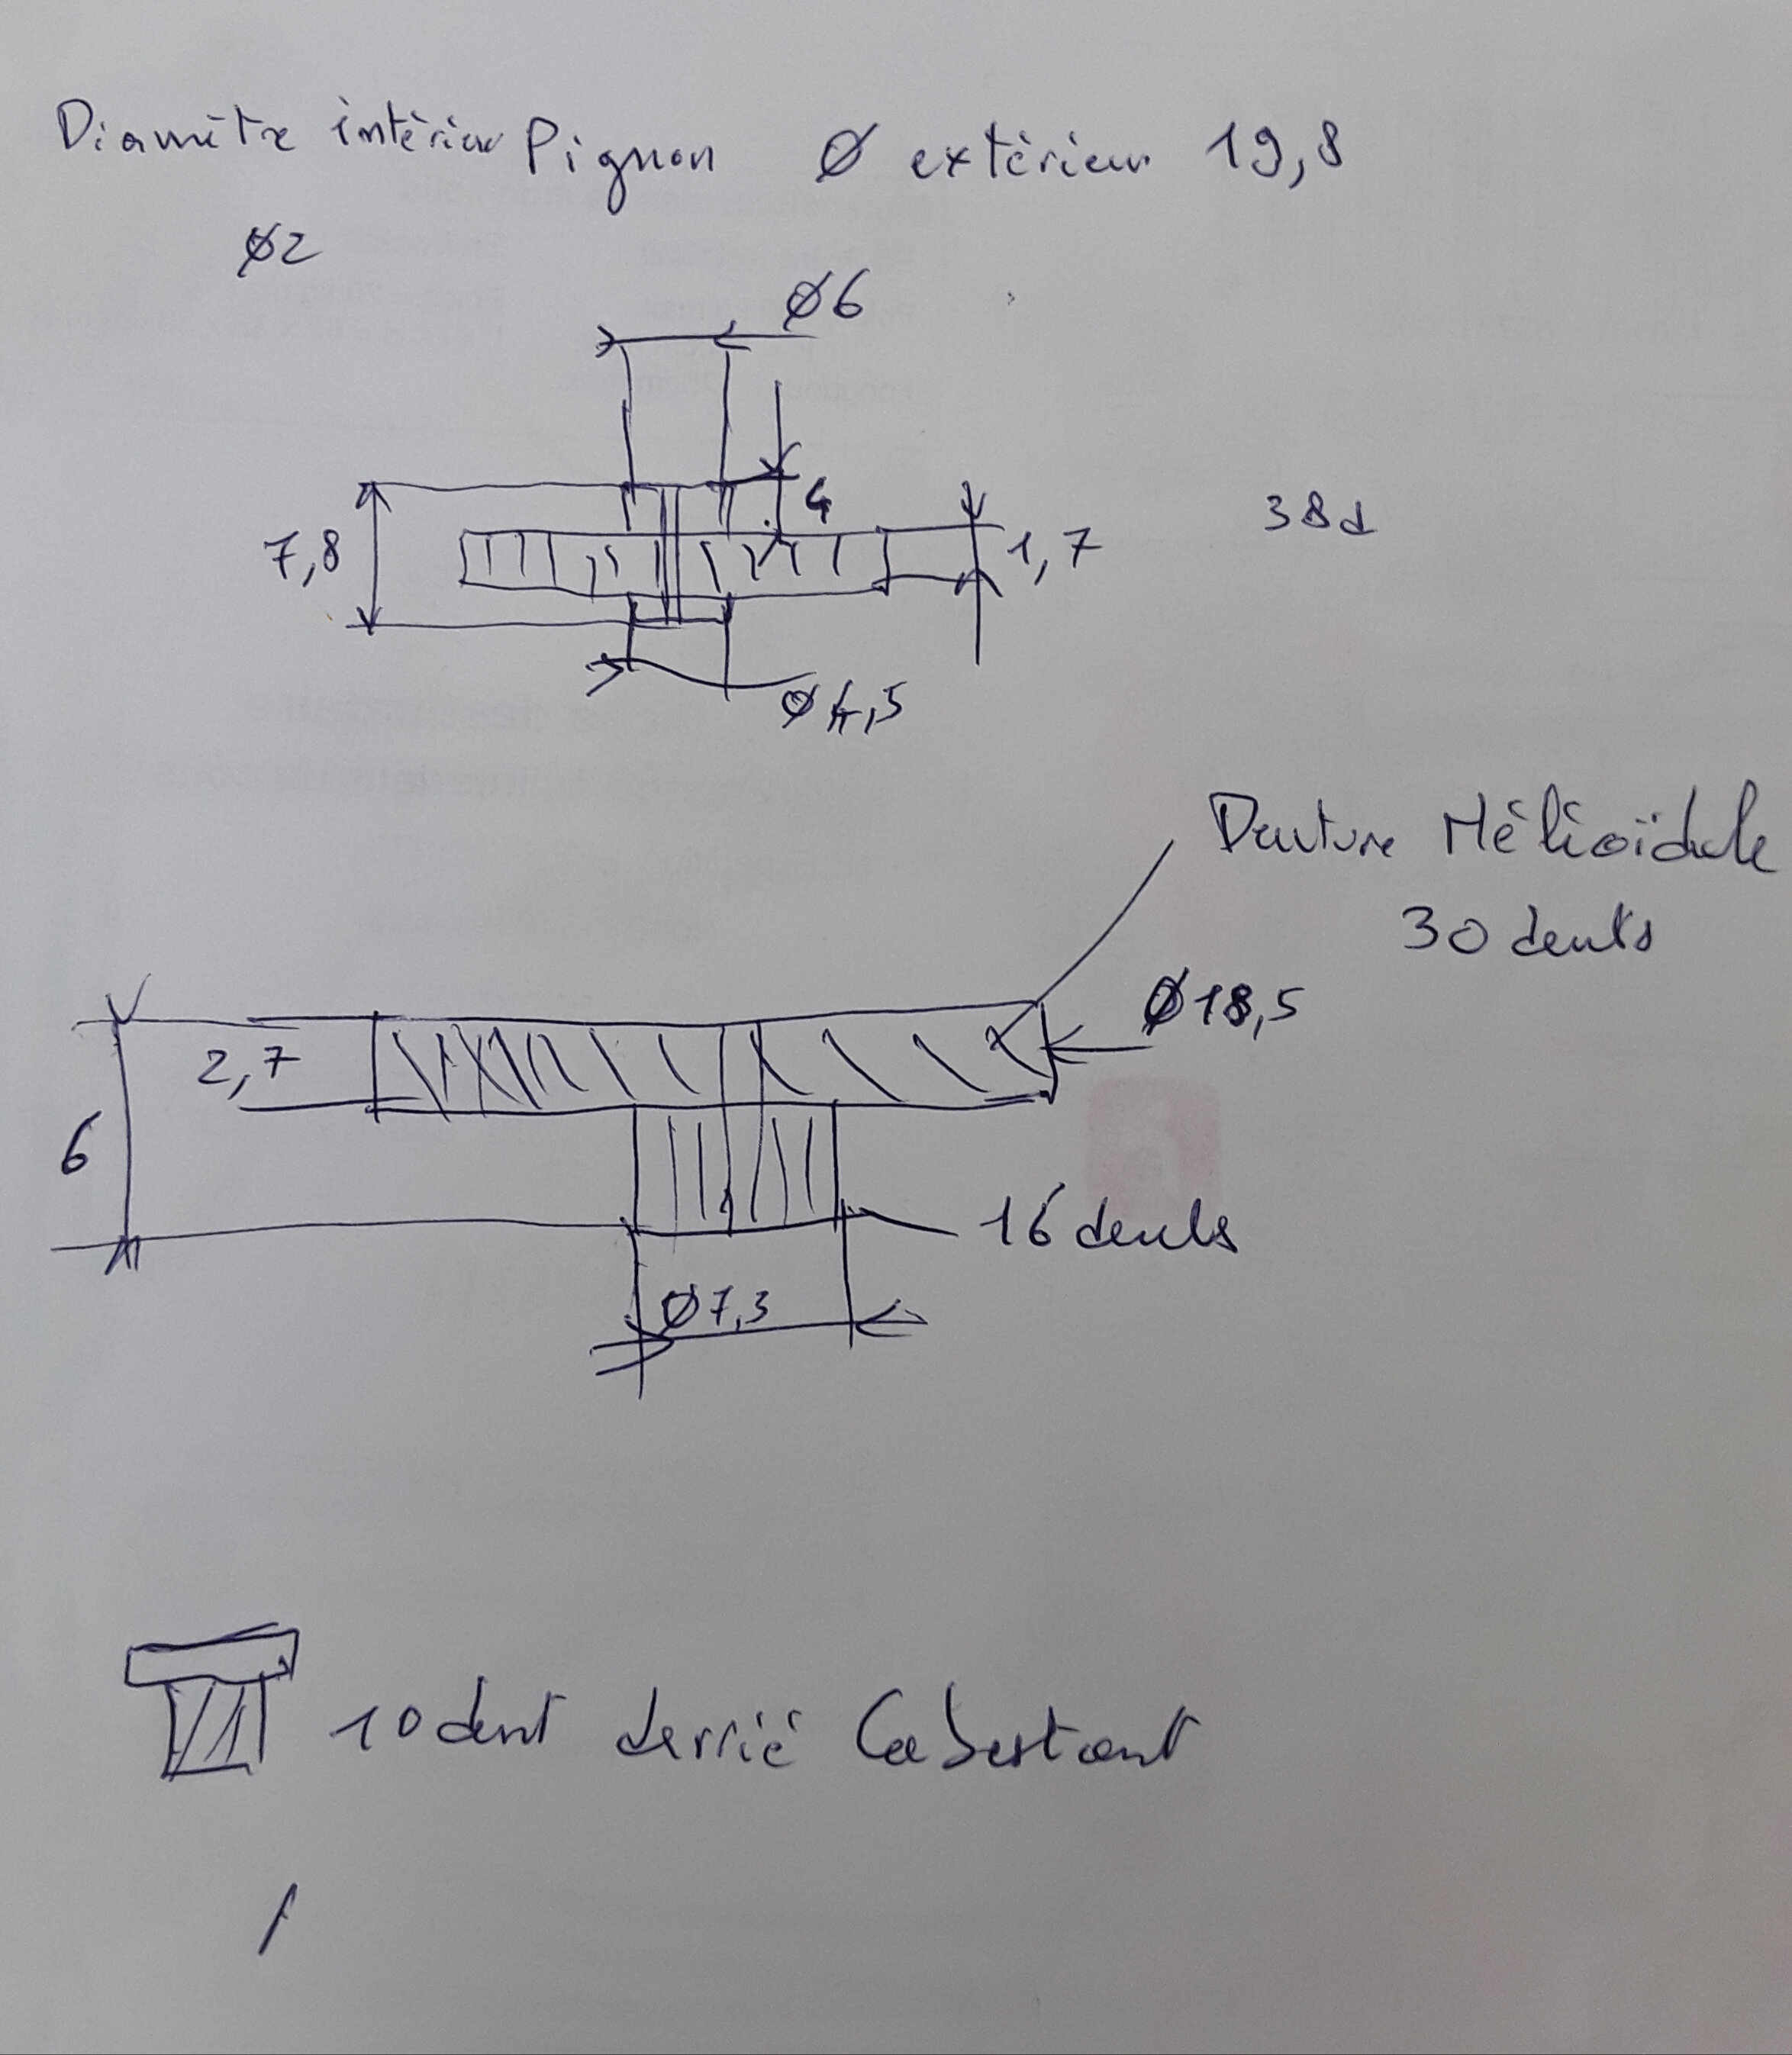 Diamètre intérieur Pignon Ø extérieur 19,8
Ø2
Ø6
4
7,8
1,7
38d
Ø4,5
Denture Hélicoïdale
30 dents
Ø18,5
2,7
6
16 dents
Ø7,3
10 dent derriè Cabestant